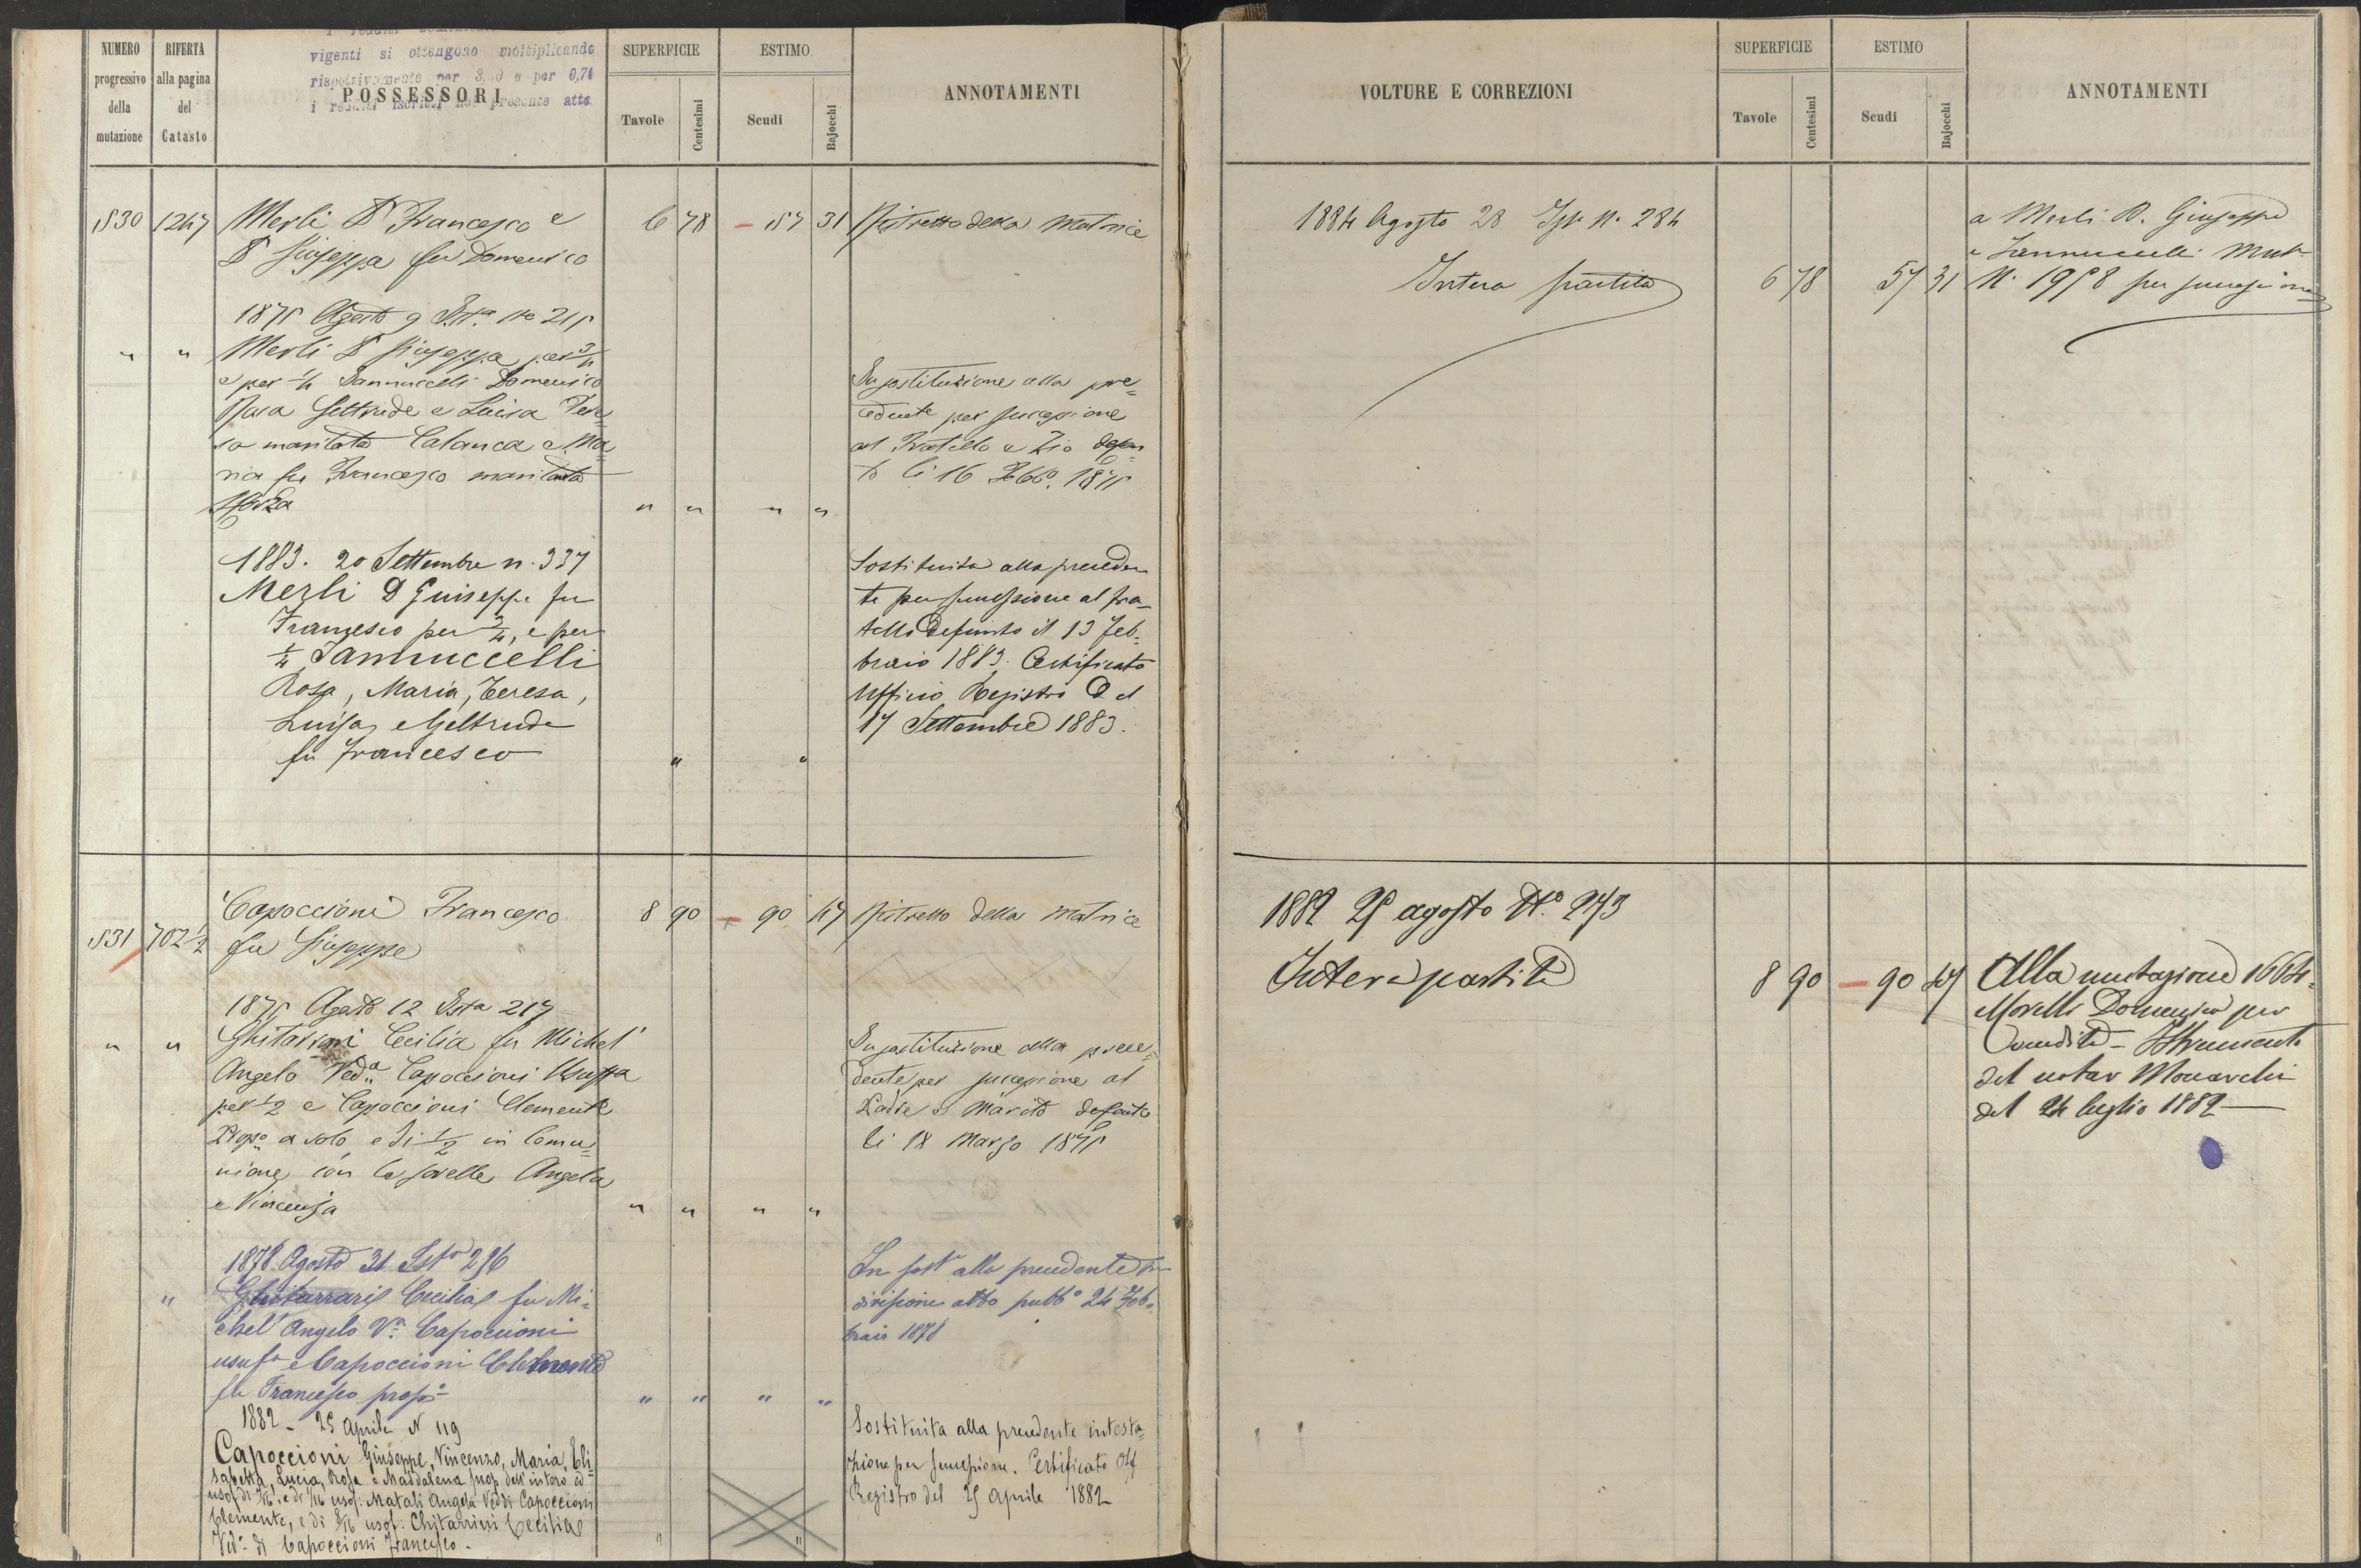 NUMERO
progressivo
della
mutazione
RIFERTA
alla pagina
del
Catasto
vigenti si ottengono moltiplicando
rispettivamente per e per 0,74
i presente atto
POSSESSORI
SUPERFICIE
Tavole
Centesimi
ESTIMO
Scudi
Bajocchi
ANNOTAMENTI
VOLTURE E CORREZIONI
SUPERFICIE
Tavole
Centesimi
ESTIMO
Scudi
Bajocchi
ANNOTAMENTI
1830 1247 Merli D. Francesco e 6 78 57 31 Ristretto della Matrice
D. Giuseppa fu Domenico
1875 Agosto 9 Ist.a No 215
" " Merli D. Giuseppa per 3/4
e per 1/4 Iannuccelli Domenico
Rosa Geltrude e Luisa Tere
sa maritata Calanca e Ma
ria fu Francesco maritata
Sforza " " " "
In sostituzione alla pre=
cedente per successione
al Fratello e Zio defun
to li 16 Febb.o 1875
1883. 20 Settembre n. 337
Merli D Giuseppe fu
Francesco per 3/4, e per
1/4 Iannuccelli
Rosa, Maria, Teresa,
Luisa, e Geltrude
fu Francesco " "
Sostituita alla preceden
te per successione al fra-
tello defunto il 13 feb-
braio 1883. Certificato
Ufficio Registro del
17 Settembre 1883.
1884 Agosto 28 Ist. N. 284
Intera partita 6 78 57 31
a Merli D. Giuseppe
e Iannuccelli Mut.
N. 1958 per successione
831 702 1/2 Capoccioni Francesco 8 90 90 47 Ristretto della Matrice
fu Giuseppe
1875 Agosto 12 Ista 217
" " Ghitarrari Cecilia fu Michel
Angelo Ved.a Capoccioni Usuf.a
per 1/2 e Capoccioni Clemente
Prop.o a solo e di 1/2 in Comu=
nione con le sorelle Angela
e Vincenza " " " "
In sostituzione alla prece=
dente per successione al
Padre e Marito defunto
li 18 Marzo 1875
1878 Agosto 31 Ist.a 296
" Ghitarrari Cecilia fu Mi=
chel'Angelo V.a Capoccioni
usuf.a e Capoccioni Clemente
fu Francesco prop.o " " " "
In sost.e alla precedente
divisione atto pubb.o 24 Feb=
braio 1878
1882 - 25 Aprile N 119
Capoccioni Giuseppe, Vincenzo, Maria, Eli=
sabetta, Lucia, Rosa e Maddalena prop. dell'intero ed
usof: Natali Angela Ved. di Capoccioni
Clemente, e di usof: Chitarrini Cecilia
Ved.a di Capoccioni Francesco. " "
Sostituita alla precedente intesta=
zione per successione. Certificato Uff
Registro del 25 aprile 1882
1882 25 agosto N.o 273
Intera partita 8 90 90 47
Alla mutazione 1664
Morelli Domenico per
Vendita - Istrumento
del notar Monarchi
del 24 luglio 1882